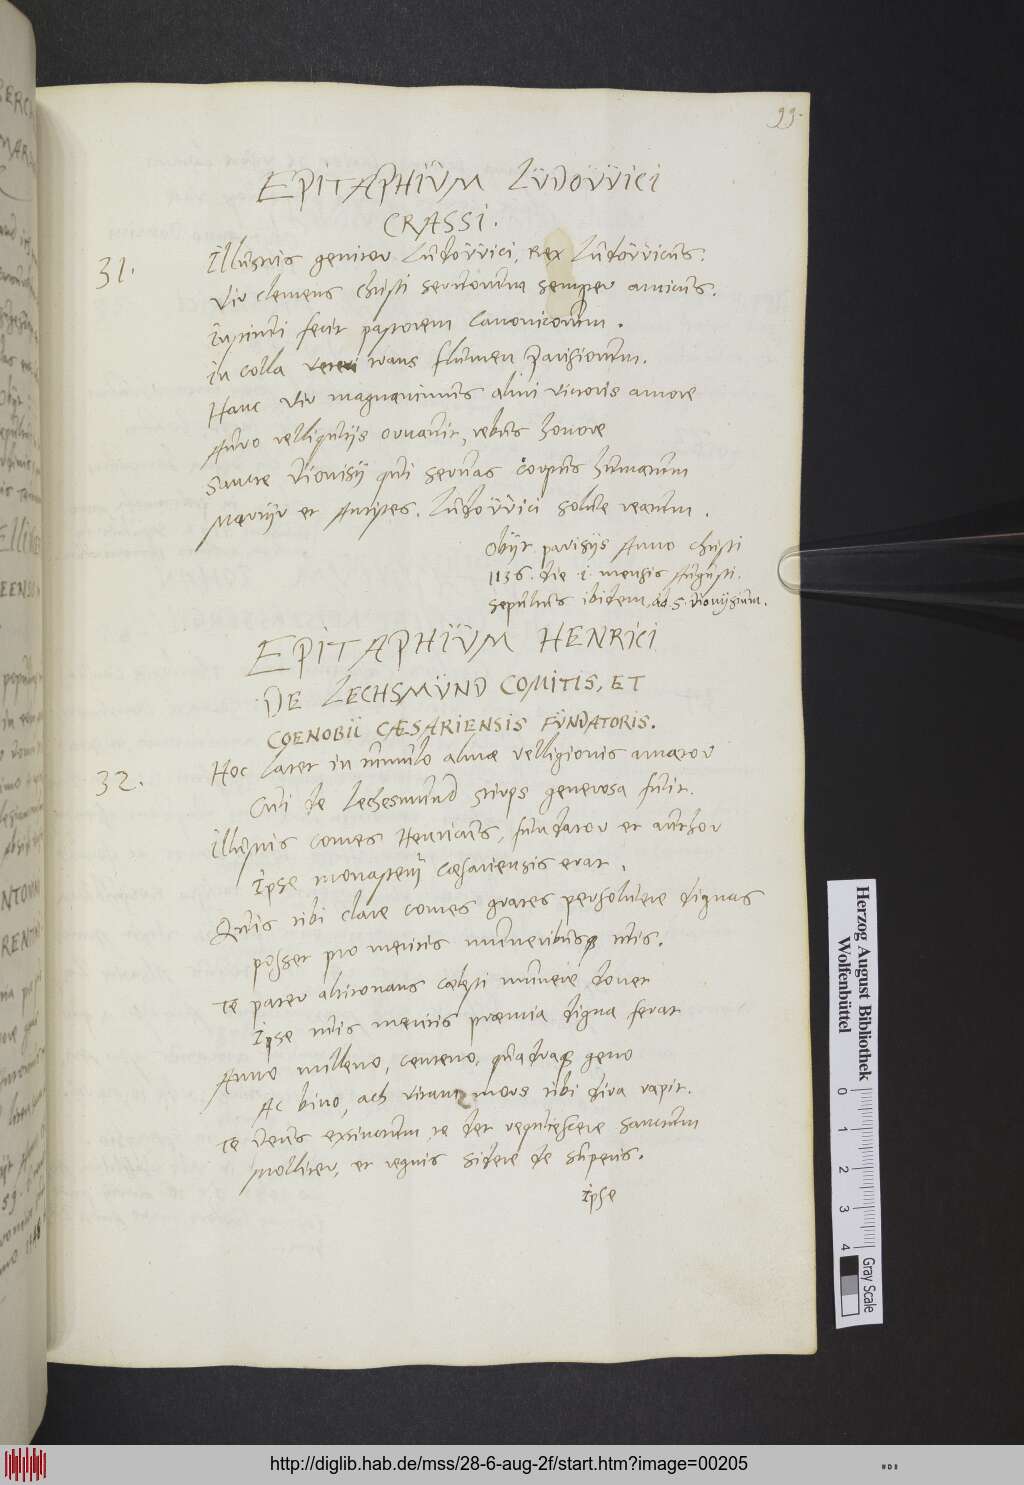 99.
EPITAPHIŬM LŬDOŬŬICI
CRASSI.
31.
Illustris genitor Ludovvici, Rex Ludovvicus.
Vir clemens christi servitorum semper amicus.
Instituti fecit pastorem Canonicorum.
in colla veteri trans flumen Parisiorum.
Hanc vir magnanimus almi victoris amore
Auro relliquiis ornavit, rebus honore
Sancte Dionisÿ qui servas corpus humatum
Martyr et Antistes. Ludovvici solve reatum.
Obijt parisijs Anno christi
1136. die .i. mensis Augusti.
Sepultus ibidem, ad S. Dionysium.
EPITAPHIŬM HENRICI
DE LECHSMŬND COMITIS, ET
COENOBII CÆSARIENSIS FŬNDATORIS.
32.
Hoc latet in tumulo almæ relligionis amator
Cui de Lechesmund stirps generosa fuit.
Illustris comes Henricus, fundator et author
Ipse monasterij cæsariensis erat.
Quis tibi clare comes grates persolvere dignas
posset pro meritis muneribusq tuis.
Te pater altitonans cœlesti munere donet
Ipse tuis meritis præmia digna ferat
Anno milleno, centeno, quadraq geno
Ac bino, ach vitam mors tibi dira rapit.
Te Deus extinctum, te det requiescere sanctum
Molliter, et regnis sidere de superis.
Ipse
Herzog August Bibliothek
Wolfenbüttel
0 1 2 3 4
Gray Scale
http://diglib.hab.de/mss/28-6-aug-2f/start.htm?image=00205